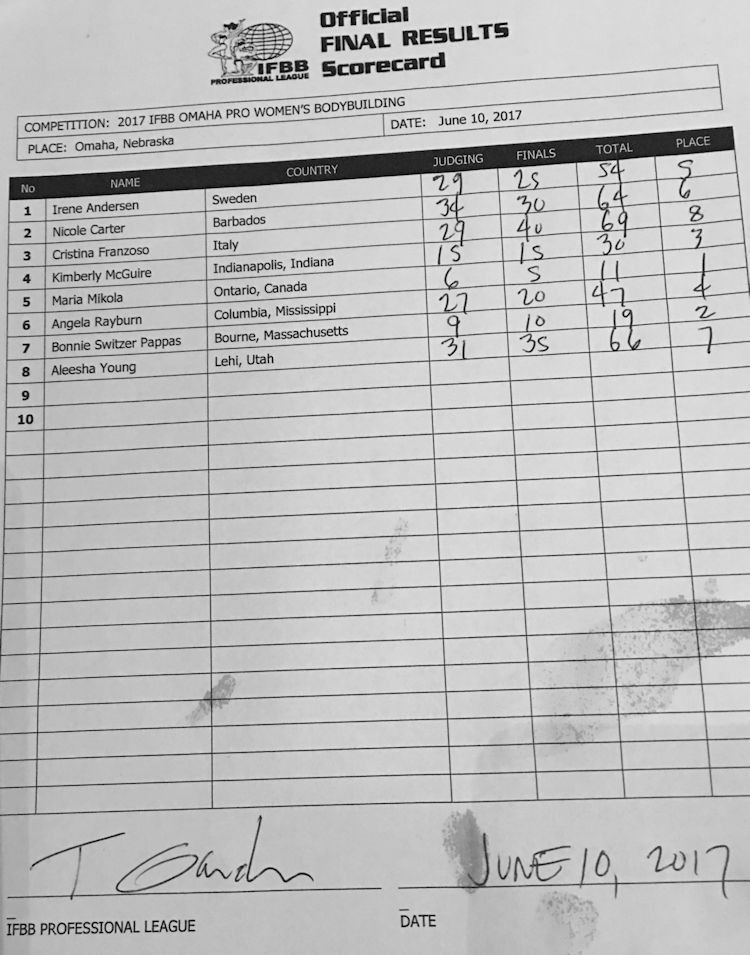 Official
FINAL RESULTS
Scorecard
IFBB
PROFESSIONAL LEAGUE
COMPETITION: 2017 IFBB OMAHA PRO WOMEN'S BODYBUILDING
PLACE: Omaha, Nebraska DATE: June 10, 2017
No NAME COUNTRY JUDGING FINALS TOTAL PLACE
1 Irene Andersen Sweden 29 25 54 5
2 Nicole Carter Barbados 34 30 64 6
3 Cristina Franzoso Italy 29 40 69 8
4 Kimberly McGuire Indianapolis, Indiana 15 15 30 3
5 Maria Mikola Ontario, Canada 6 5 11 1
6 Angela Rayburn Columbia, Mississippi 27 20 47 4
7 Bonnie Switzer Pappas Bourne, Massachusetts 9 10 19 2
8 Aleesha Young Lehi, Utah 31 35 66 7
9
10
JUNE 10, 2017
IFBB PROFESSIONAL LEAGUE DATE